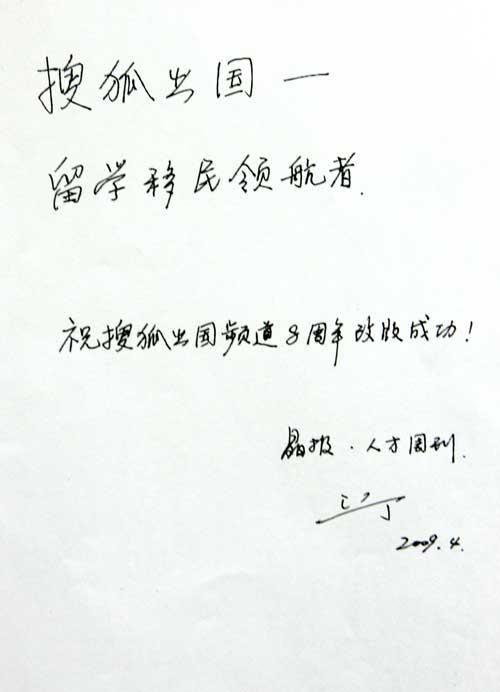 搜狐出国—
留学移民领航者.
祝搜狐出国频道8周年改版成功!
晶报·人才周刊.
2009.4.